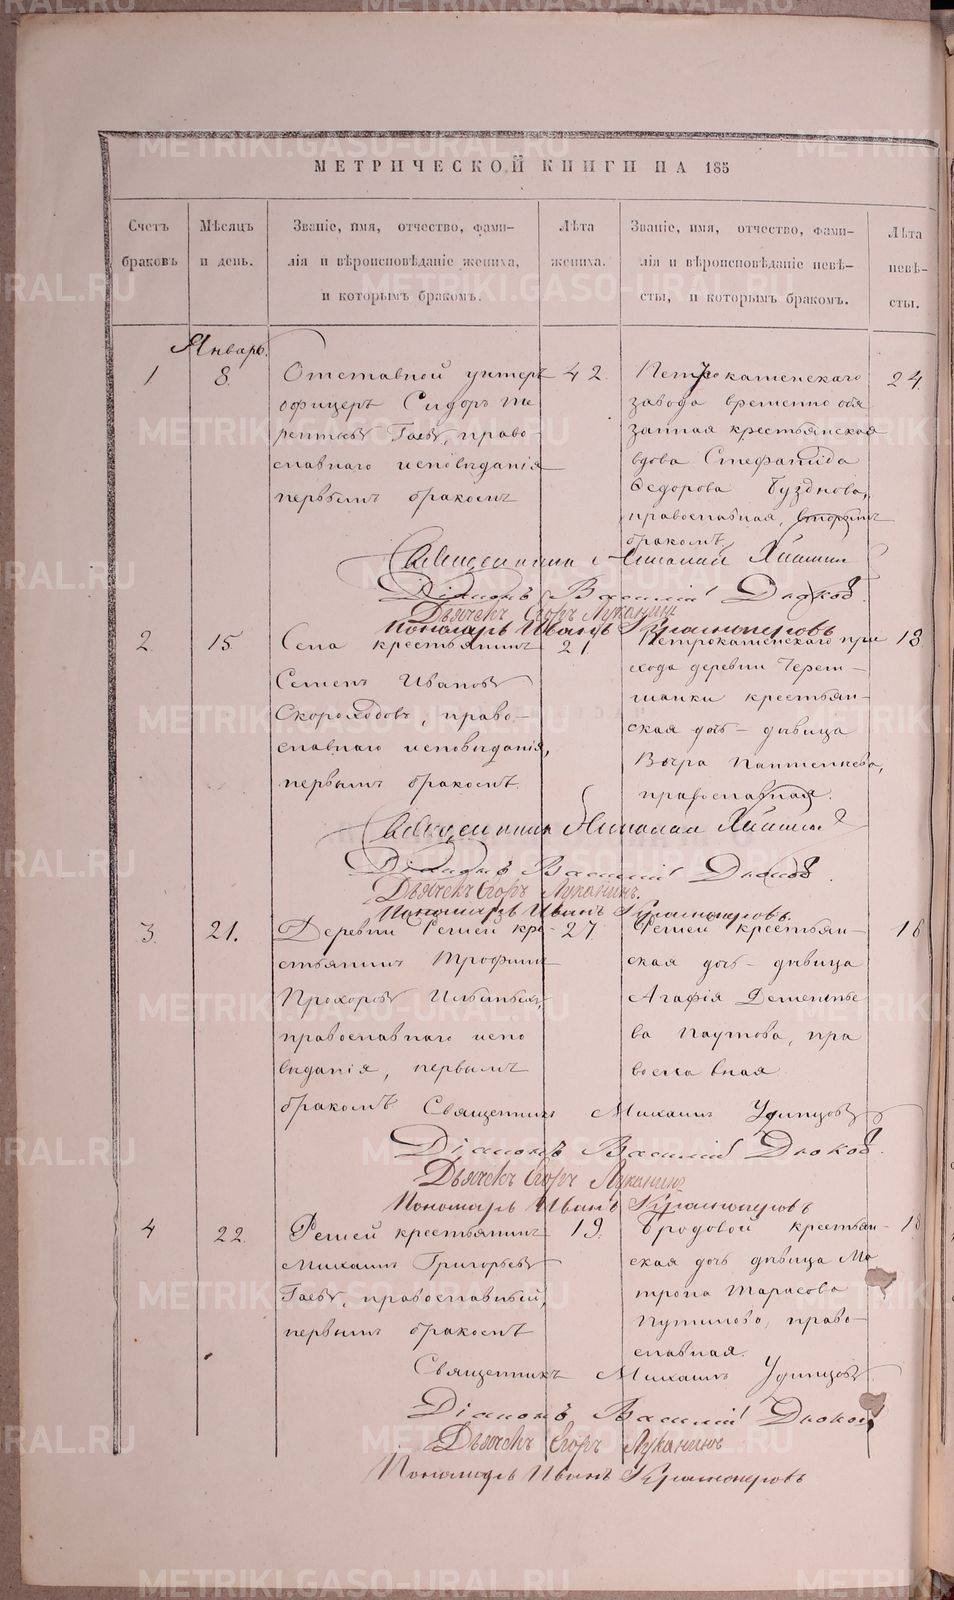 МЕТРИЧЕСКОЙ КНИГИ НА 185
Счетъ браковъ
Мѣсяцъ и день.
Званіе, имя, отчество, фами-
лія и вѣроисповѣданіе жениха,
и которымъ бракомъ.
Лѣта
жениха.
Званіе, имя, отчество, фами-
лія и вѣроисповѣданіе невѣ-
сты, и которымъ бракомъ.
Лѣта
невѣ-
сты.
Январь.
1
8
Отставной унтеръ
офицеръ Сидоръ Те
рентьевъ Гаевъ, право-
славнаго исповѣданія
первымъ бракомъ
42
Петрокаменскаго
завода временно обя
занная крестьянская
вдова Стефанида
Ѳедорова
православная, вторымъ
бракомъ.
24
Священникъ Николай
Діаконъ Василій Дьяковъ
Дьячекъ Егоръ Луканинъ
Пономарь Иванъ Красноперовъ
2
15
Села крестьянинъ
Семенъ Ивановъ
Скороходовъ, право-
славнаго исповѣданія,
первымъ бракомъ
21
Петрокаменскаго при
хода деревни Черем-
шанки крестьян-
ская дочь - дѣвица
Вѣра
православная.
18
Священникъ Николай
Діаконъ Василій Дьяковъ.
Дьячекъ Егоръ Луканинъ.
Пономарь Иванъ Красноперовъ.
3.
21.
Деревни Решей кре-
стьянинъ Трофимъ
Прохоровъ
православнаго испо
вѣданія, первымъ
бракомъ
27
Решей крестьян-
ская дочь - дѣвица
Агафія Дементье
ва Паутова, пра
вославная
16
Священникъ Михаилъ Удинцовъ
Діаконъ Василій Дьяковъ.
Дьячекъ Егоръ Луканинъ
Пономарь Иванъ Красноперовъ
4
22
Решей крестьянинъ
Михаилъ Григорьевъ
Гаевъ, православный,
первымъ бракомъ
19.
Бродовой крестьян-
ская дочь дѣвица Ма
трона Тарасова
Путилова, право-
славная.
Священникъ Михаилъ Удинцовъ
Діаконъ Василій Дьяковъ
Дьячекъ Егоръ Луканинъ
Пономарь Иванъ Красноперовъ
METRIKI.GASO-URAL.RU